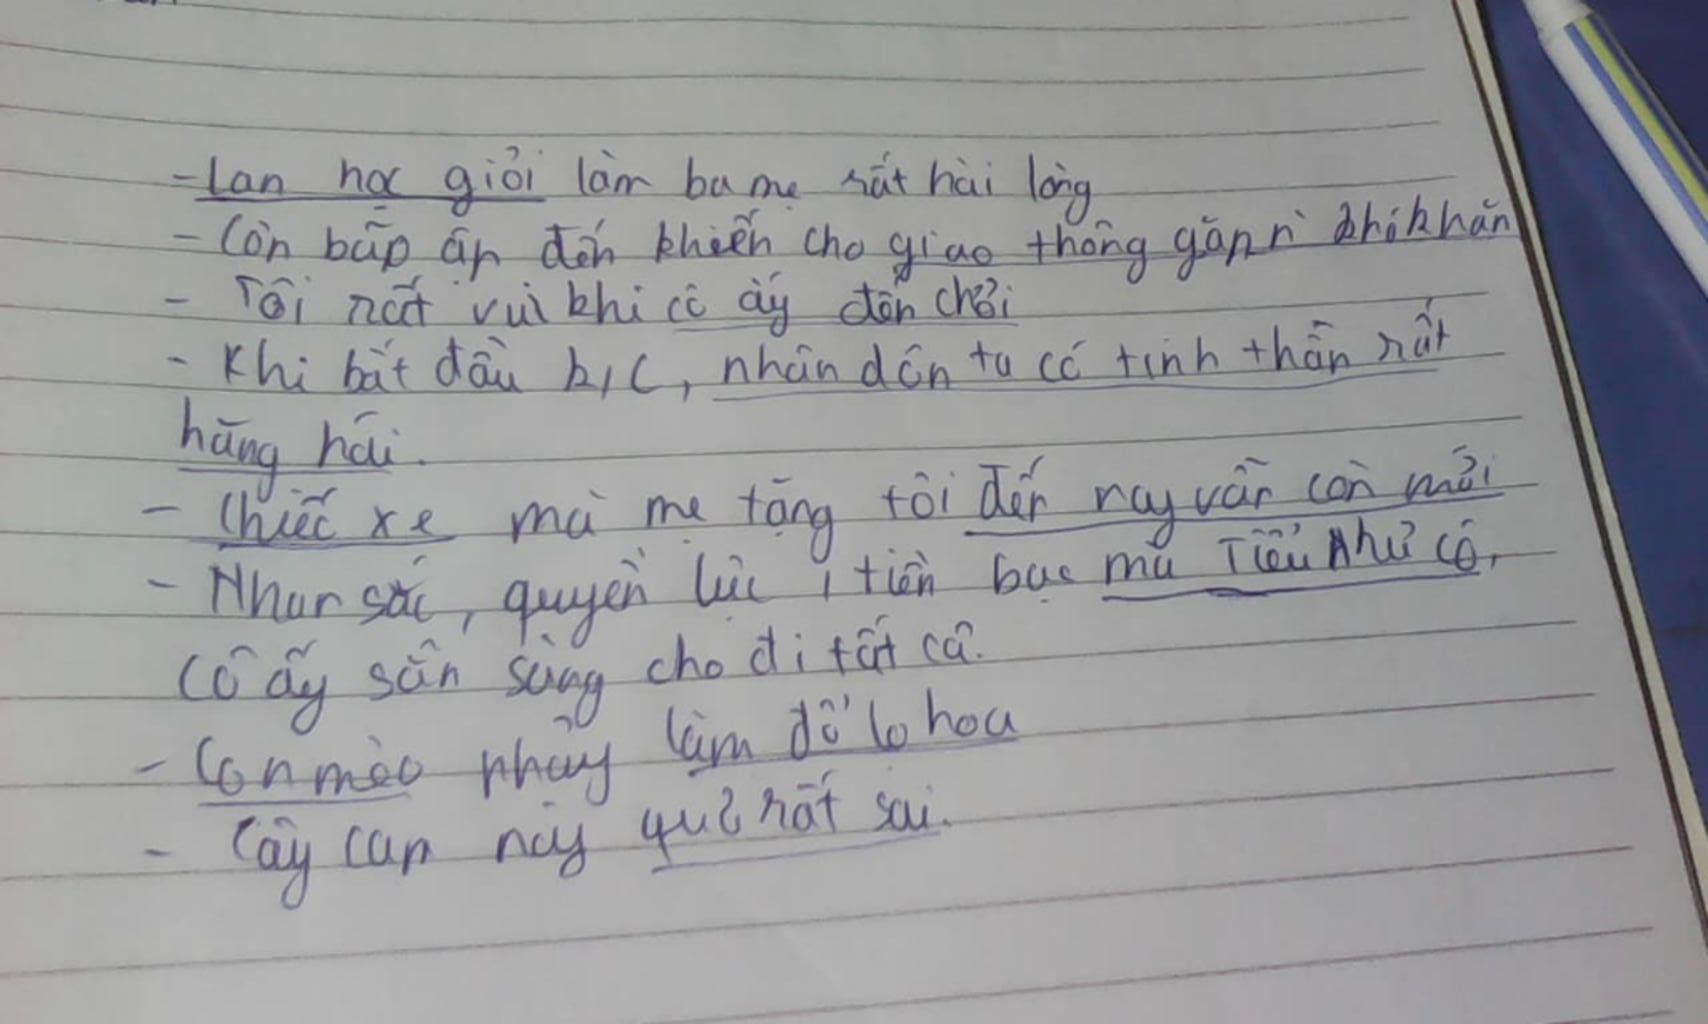 - Lan học giỏi làm ba mẹ rất hài lòng
- Cơn bão ập đến khiến cho giao thông gặp khó khăn
- Tôi rất vui khi cô ấy đến chơi
- Khi bắt đầu k/c, nhân dân ta có tinh thần rất
hăng hái.
- Chiếc xe mà mẹ tặng tôi đến nay vẫn còn mới
- Nhan sắc, quyền lực, tiền bạc mà Tiểu Như có,
cô ấy sẵn sàng cho đi tất cả.
- Con mèo nhảy làm đổ lọ hoa
- Cây cam này quả rất sai.